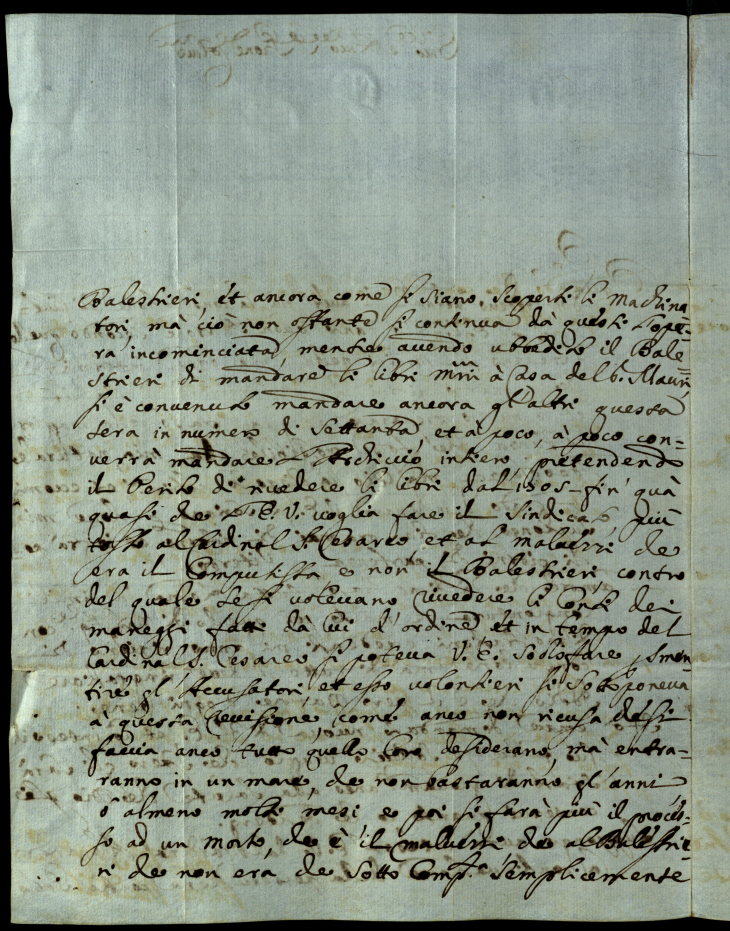 Balestrieri, et ancora come si siano scoperti li Machina
tori, mà ciò non ostante si continua dà questi l'ope=
ra incominciata, mentre avendo ubbedito il Bale=
strieri di mandare li libri à Casa del Mauri
si è convenuto mandare ancora gl'altri questa
sera in numero di settanta, et a poco, à poco con=
verrà mandare l'Archivio intiero pretendendo
il Perito di rivedere li libri dal 1505 fin quà
quasi che V. E. voglia fare il Sindicato più
tosto al Cardinal S. Cesareo, et al Malvezzi che
era il Computista, e non il Balestrieri, contro
del quale se si volevano rivedere li Conti dei
maneggi fatti dà lui d'ordine, et in tempo del
Cardinal S. Cesareo si poteva V. E. sodisfare, smen
tire gl'Accusatori, et esso volontieri si sottoponeva
à questa revisione, come anco non ricusa che si
faccia anco tutto quello loro desiderano, mà entra=
ranno in un mare, che non bastaranno gl'anni
ò almeno molti mesi e poi si farà più il proces=
so ad un Morto, che è il Malvezzi che al Balestrie
ri che non era, che Sotto Comp.ta semplicemente